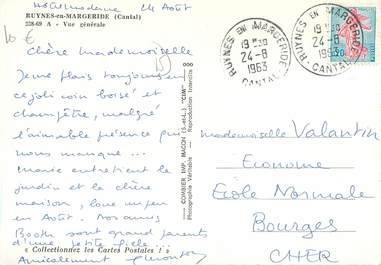 24 Août
RUYNES-en-MARGERIDE (Cantal)
328-69 A - Vue générale
10 €
Chère Mademoiselle
Je me plais toujours en
ce joli coin boisé et
champêtre, malgré
l'aimable présence qui
nous manque ...
Marie entretient le
jardin et la chère
maison, loue un peu en
en Août. Nos amis
Booth sont grand parents
d'une petite fille...
Amicalement
« Collectionnez les Cartes Postales ! »
COMBIER IMP. MACON (S.-et-L.) "CIM"
Photographie Véritable - Reproduction Interdite
RUYNES EN MARGERIDE
24-8
1963
CANTAL
RUYNES EN MARGERIDE
24-8
1963
CANTAL
Mademoiselle Valantin
Econome
Ecole Normale
Bourges
CHER